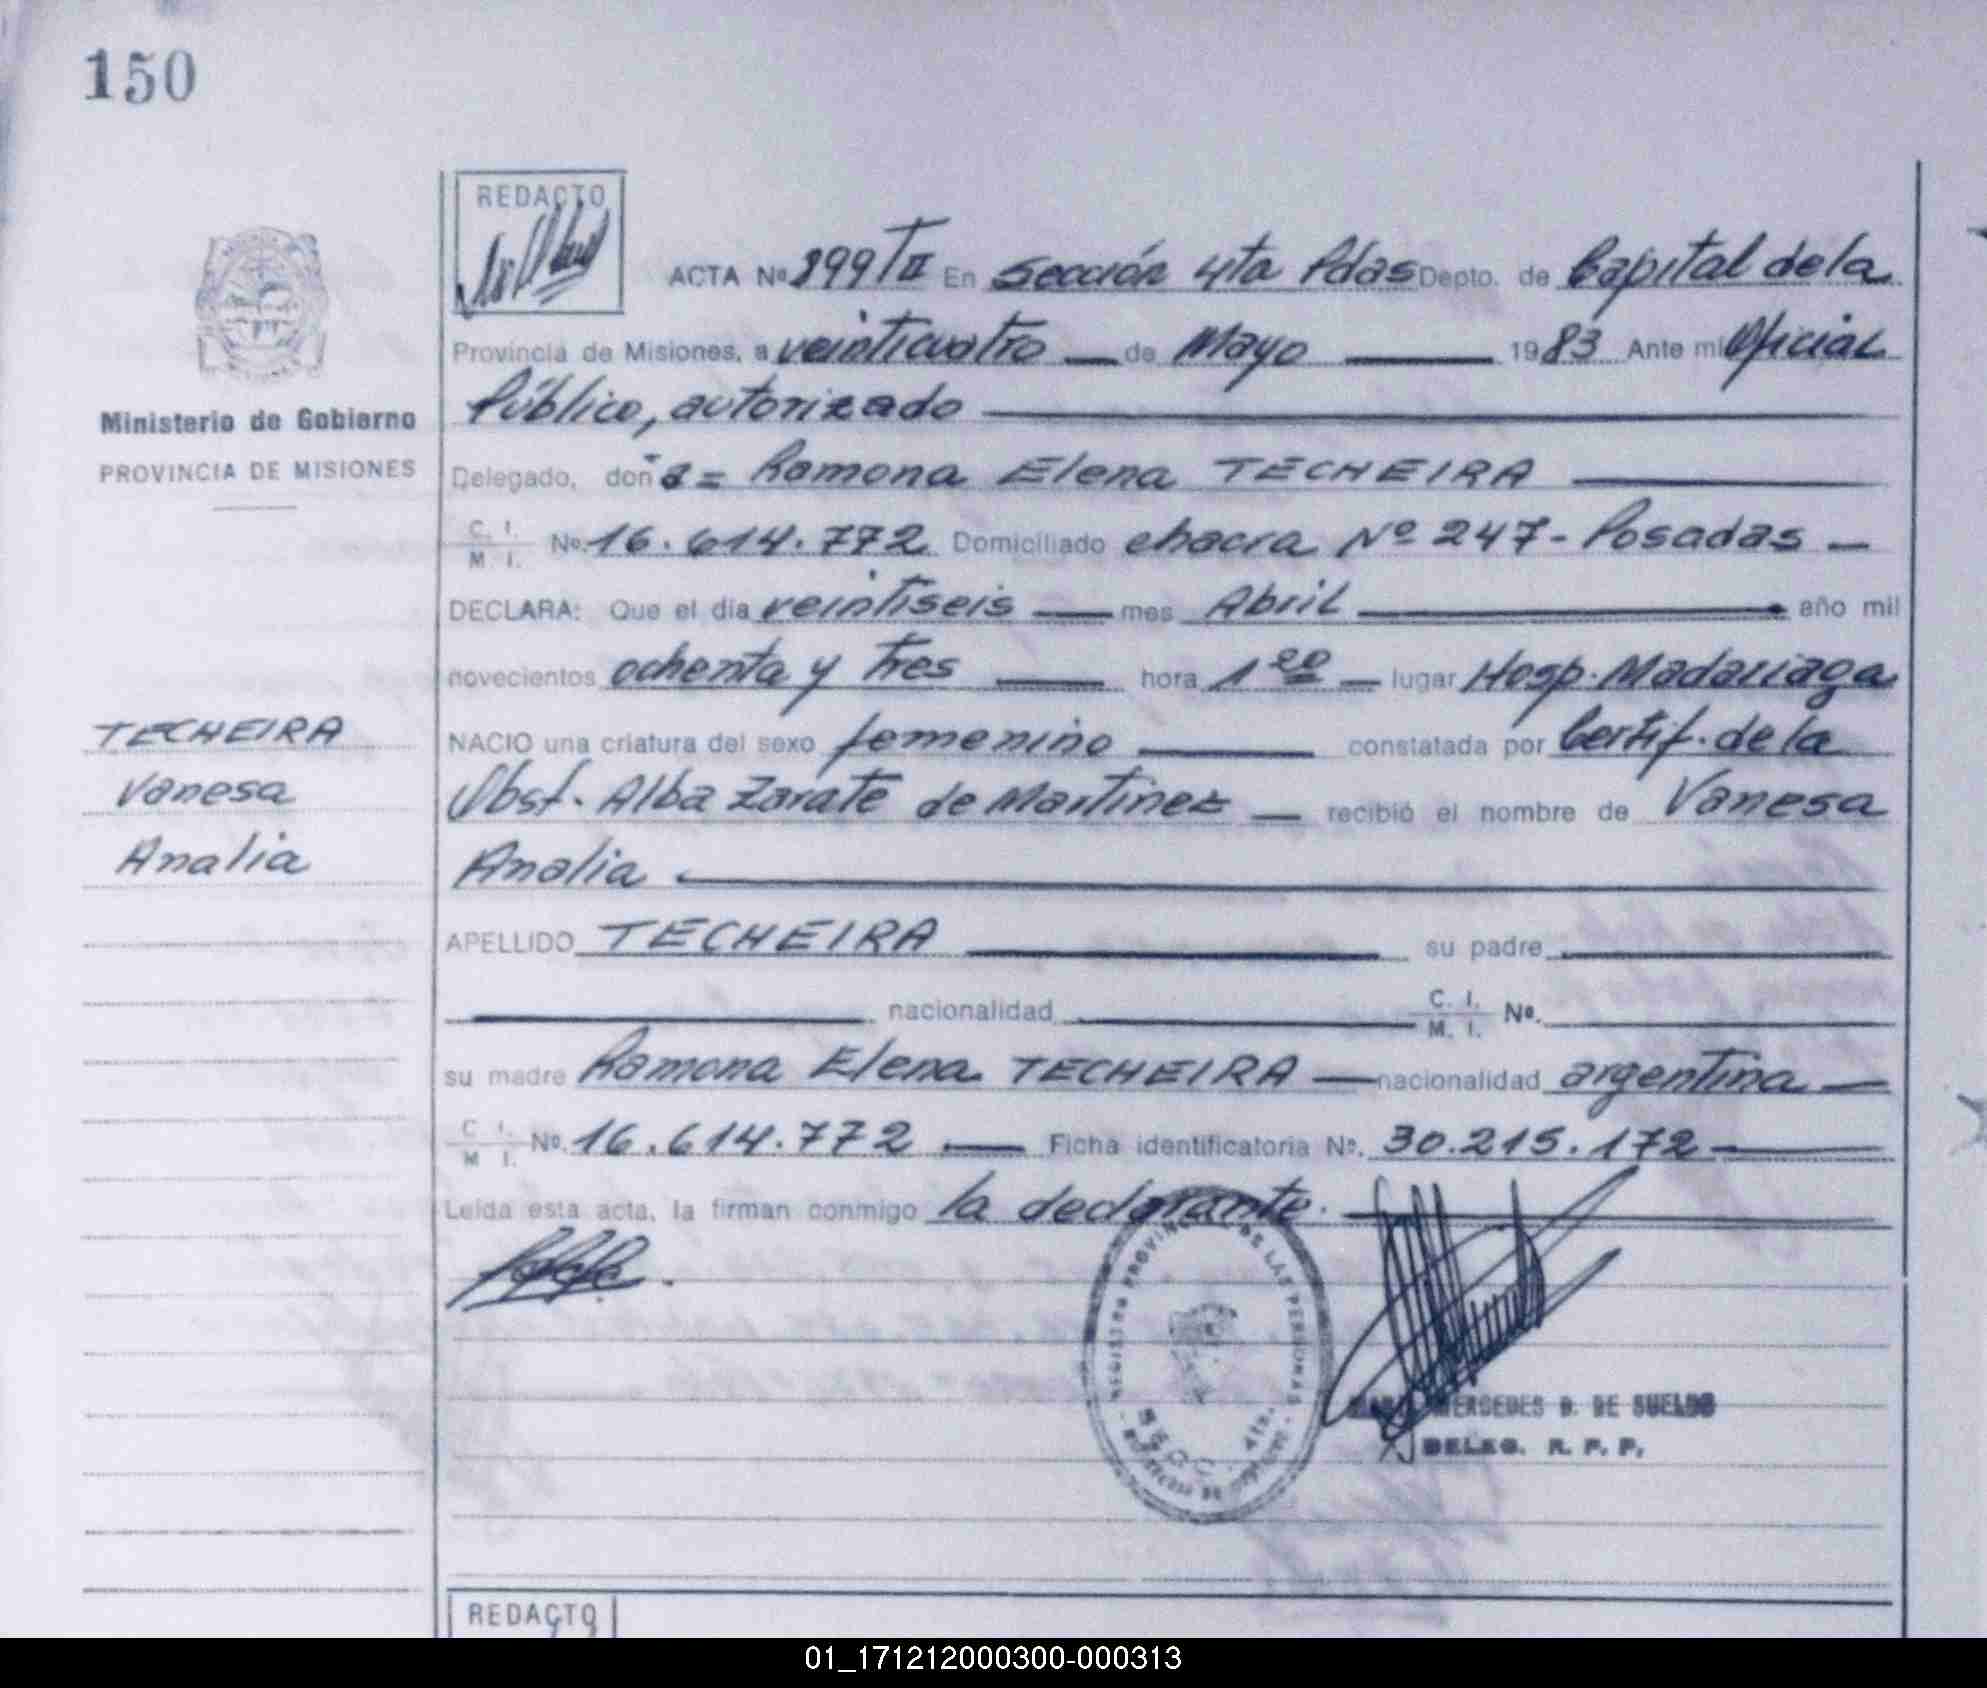 150
REDACTO
ACTA Nº 899 T II En Sección 4ta Pdas Depto. de Capital de la
Provincia de Misiones, a veinticuatro de Mayo 1983 Ante mi Oficial
Público, autorizado
Ministerio de Gobierno
PROVINCIA DE MISIONES
Delegado, doña = Ramona Elena TECHEIRA
C. I.
M. I. Nº. 16.614.772 Domiciliado chacra Nº 247 - Posadas
DECLARA: Que el día veintiseis mes Abril año mil
novecientos ochenta y tres hora 1 00 lugar Hosp. Madariaga
TECHEIRA
Vanesa
Analia
NACIO una criatura del sexo femenino constatada por Certif. de la
Obst. Alba Zarate de Martinez recibió el nombre de Vanesa
Analia
APELLIDO TECHEIRA su padre
nacionalidad C. I.
M. I. Nº.
su madre Ramona Elena TECHEIRA nacionalidad argentina
C. I.
M. I. Nº. 16.614.772 Ficha identificatoria Nº. 30.215.172
Leída esta acta, la firman conmigo la declarante.
REGISTRO PROVINCIAL DE LAS PERSONAS
SECC. 4ta.
MERCEDES D. DE SUELDO
DELEG. R. P. P.
REDACTO
01_171212000300-000313